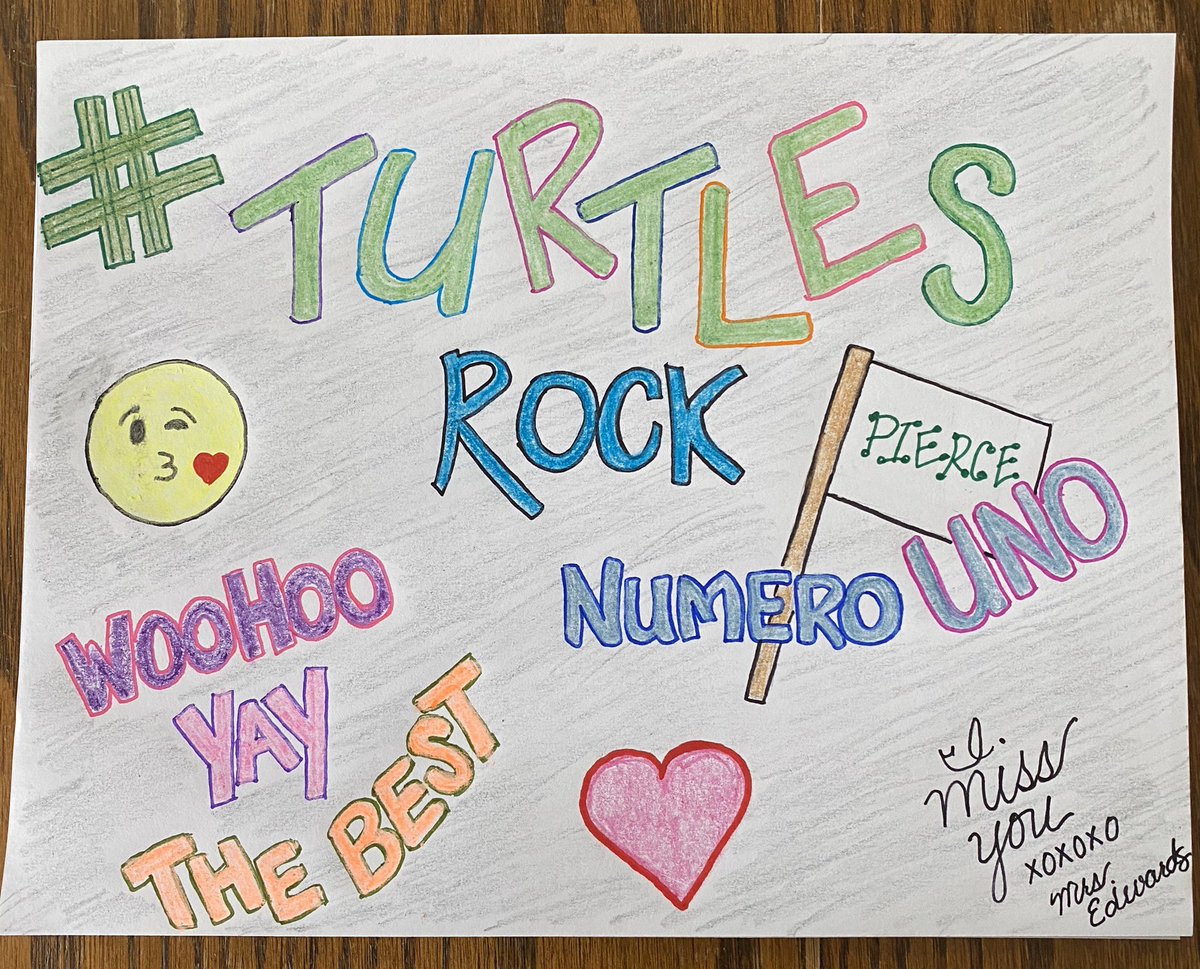 #TURTLES
ROCK
PIERCE
NUMERO UNO
WOOHOO
YAY
THE BEST
I
miss
you
xoxoxo
Mrs.
Edwards